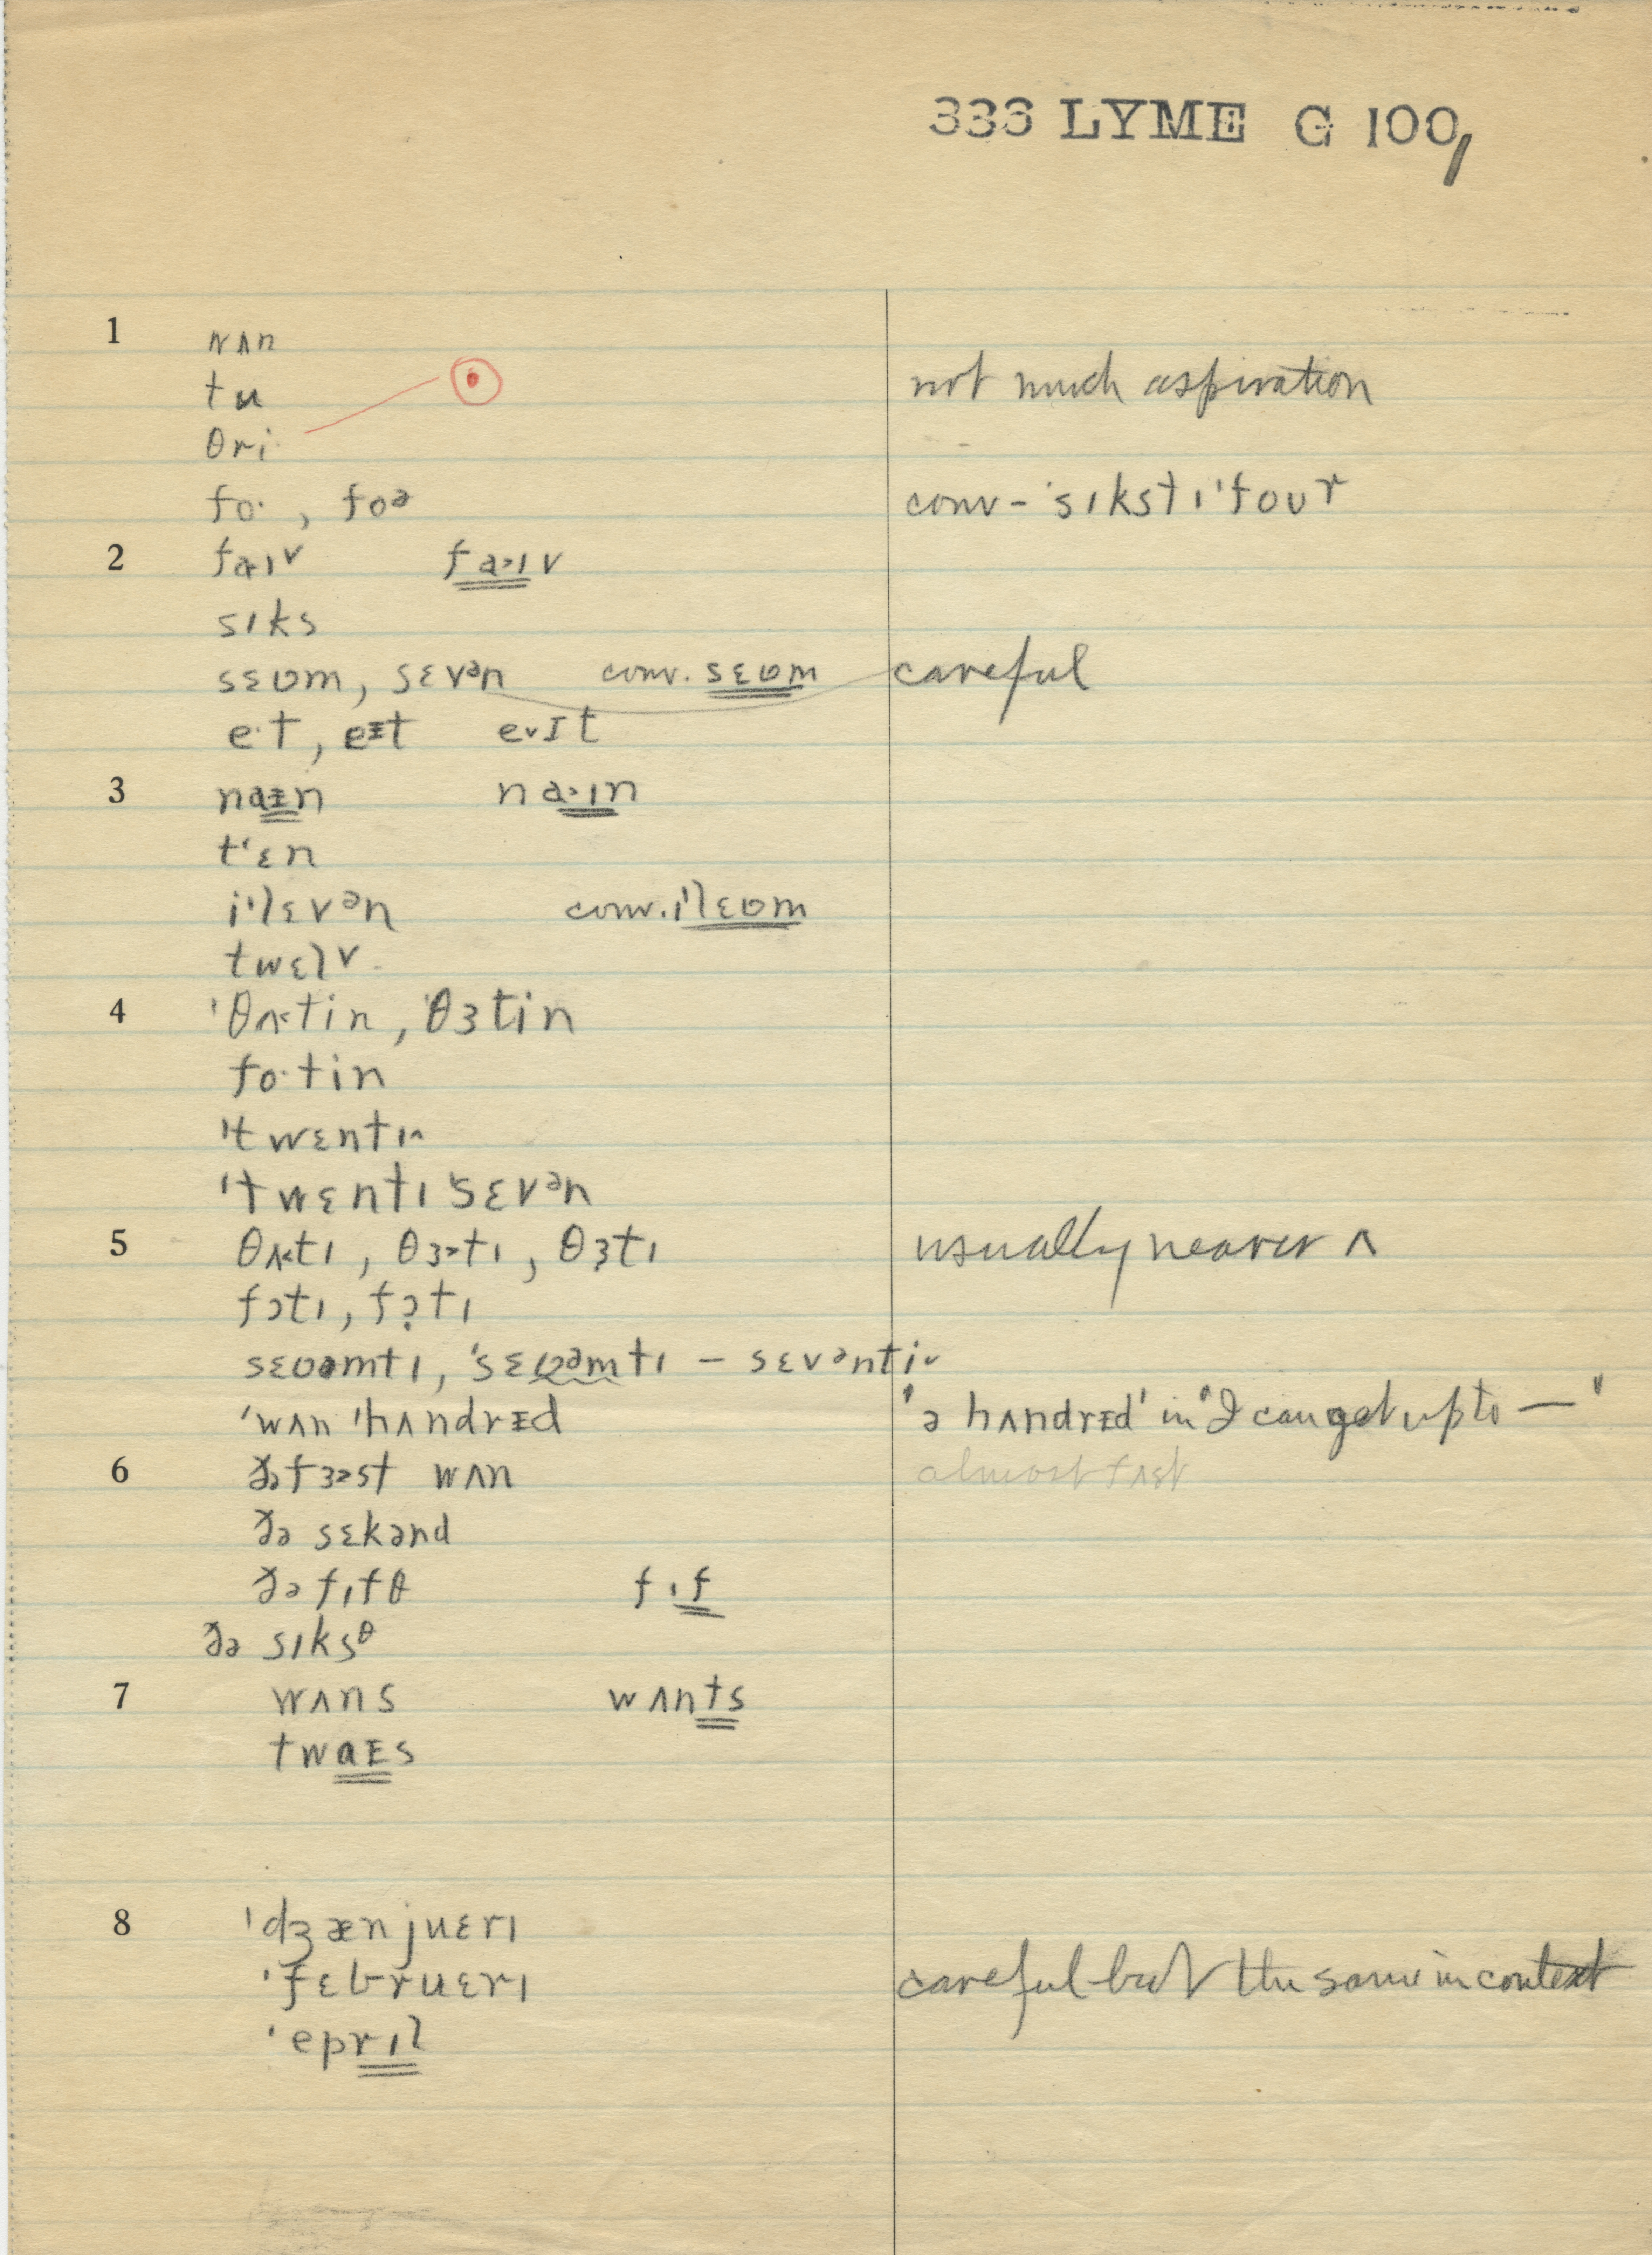 333 LYME G 100
1 wʌn
tu not much aspiration
θri
fo·, foᵊ conv - ˈsɪkstɪˈfoʊr
2 faɪv fa˃ɪv
sɪks
sɛʋm, sɛvᵊn conv. sɛʋm careful
e·t, eᵻt e˅ɪt
3 naᵻn na˃ɪn
tʻɛn
iˈlɛvᵊn conv. iˈlɛʋm
twɛlv
4 ˈθʌ˂tin, ˈθɜtin
fo·tin
ˈtwɛntɪ˄
ˈtwɛntɪˈsɛvᵊn
5 θʌ˂tɪ, θɜ˃tɪ, θɜ̣tɪ usually nearer ʌ
fɔtɪ, fɔ̣tɪ
sɛʋəmtɪ, ˈsɛʋəmtɪ – sɛvᵊnti˅
ˈwʌn ˈhʌndrᵻd 'ə hʌndrᵻd' in 'I can get up to —'
6 ðə fɜ˃st wʌn almost fʌst
ðə sɛkənd
ðə fɪfθ fɪf
ðə sɪksᶿ
7 wʌns wʌnts
twaᵻs
8 ˈdʒænjuɛrɪ
ˈfɛbruɛrɪ careful but the same in context
ˈeprɪl